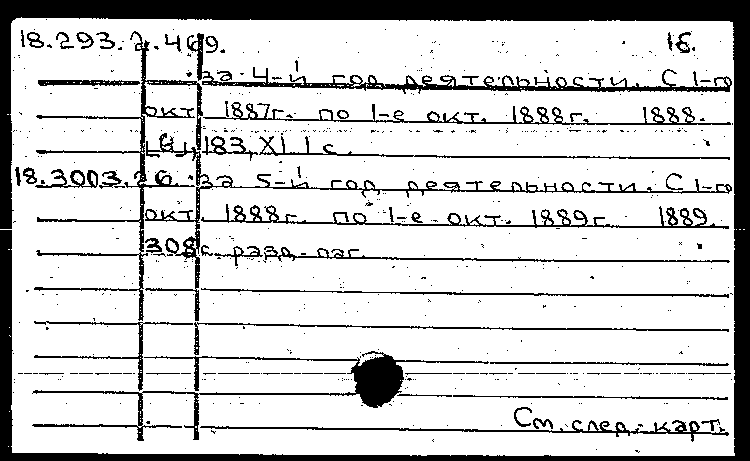 18.293.2.469. 16.
. за 4-й год деятельности. С 1-го
окт. 1887г. по 1-е окт. 1888г. 1888.
183, XI, 1 с.
18.3003.26. . за 5-й год деятельности. С 1-го
окт. 1888г. по 1-е окт. 1889г. 1889.
308с. разд. паг.
См. след. карт.